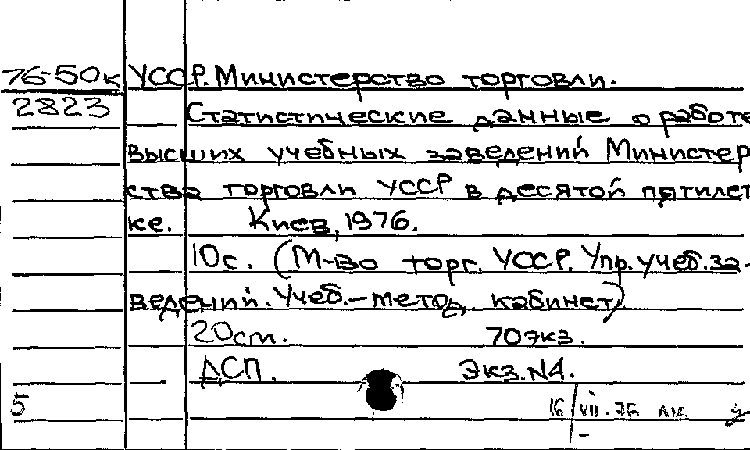 76-50к УССР. Министерство торговли.
2823 Статистические данные о работе
высших учебных заведений Министер
ства торговли УССР в десятой пятилет
ке. Киев, 1976.
10с. (М-во торг. УССР. Упр. учеб. за-
ведений. Учеб.-метод. кабинет)
20 cm. 70 экз.
ДСП. Экз. N4.
5 16/VII-76